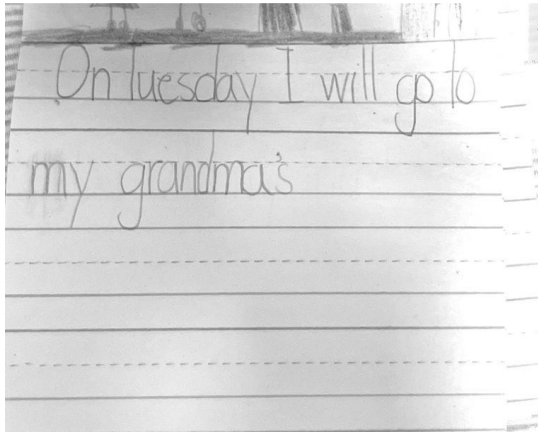 On Tuesday I will go to
my grandma's